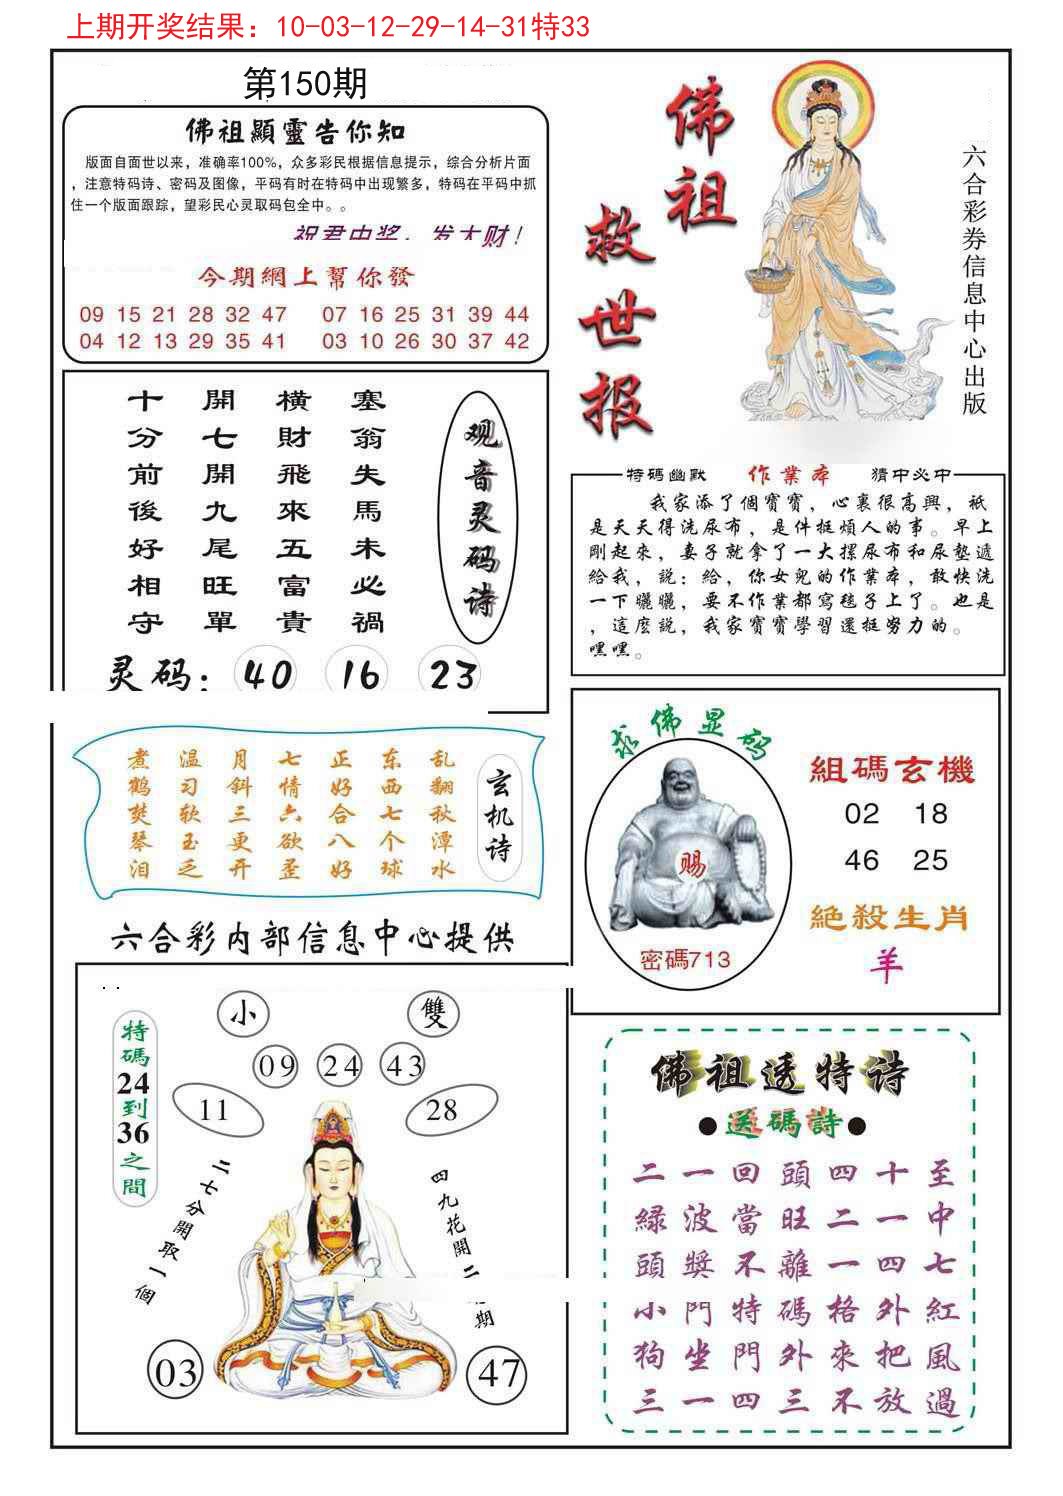 上期开奖结果：10-03-12-29-14-31特33
第150期
佛祖顯靈告你知
版面自面世以来，准确率100%，众多彩民根据信息提示，综合分析片面
，注意特码诗、密码及图像，平码有时在特码中出现繁多，特码在平码中抓
住一个版面跟踪，望彩民心灵取码包全中。。
祝君中奖，发大财！
今期網上幫你發
09 15 21 28 32 47 07 16 25 31 39 44
04 12 13 29 35 41 03 10 26 30 37 42
佛祖
救世报
六合彩券信息中心出版
观音灵码诗
塞翁失馬未必禍
橫財飛來五富貴
開七開九尾旺單
十分前後好相守
灵码：40 16 23
特码幽默 作業本 猜中必中
我家添了個寶寶，心裏很高興，祇
是天天得洗尿布，是件挺煩人的事。早上
剛起來，妻子就拿了一大摞尿布和尿墊遞
給我，説：給，你女兒的作業本，敢快洗
一下曬曬，要不作業都寫毯子上了。也是
，這麽説，我家寶寶學習還挺努力的。
嘿嘿。
玄机诗
乱翻秋潭水
东西七个球
正好合八好
七情六欲歪
月斜三更开
温习软玉乏
煮鹤焚琴泪
求佛显码
赐
密碼713
組碼玄機
02 18
46 25
絕殺生肖
羊
六合彩内部信息中心提供
特碼24到36之間
小 雙
09 24 43
11 28
二七分開取一個
四九花開二
期
03 47
佛祖透特诗
●送碼詩●
二一回頭四十至
緑波當旺二一中
頭獎不離一四七
小門特碼格外紅
狗坐門外來把風
三一四三不放過